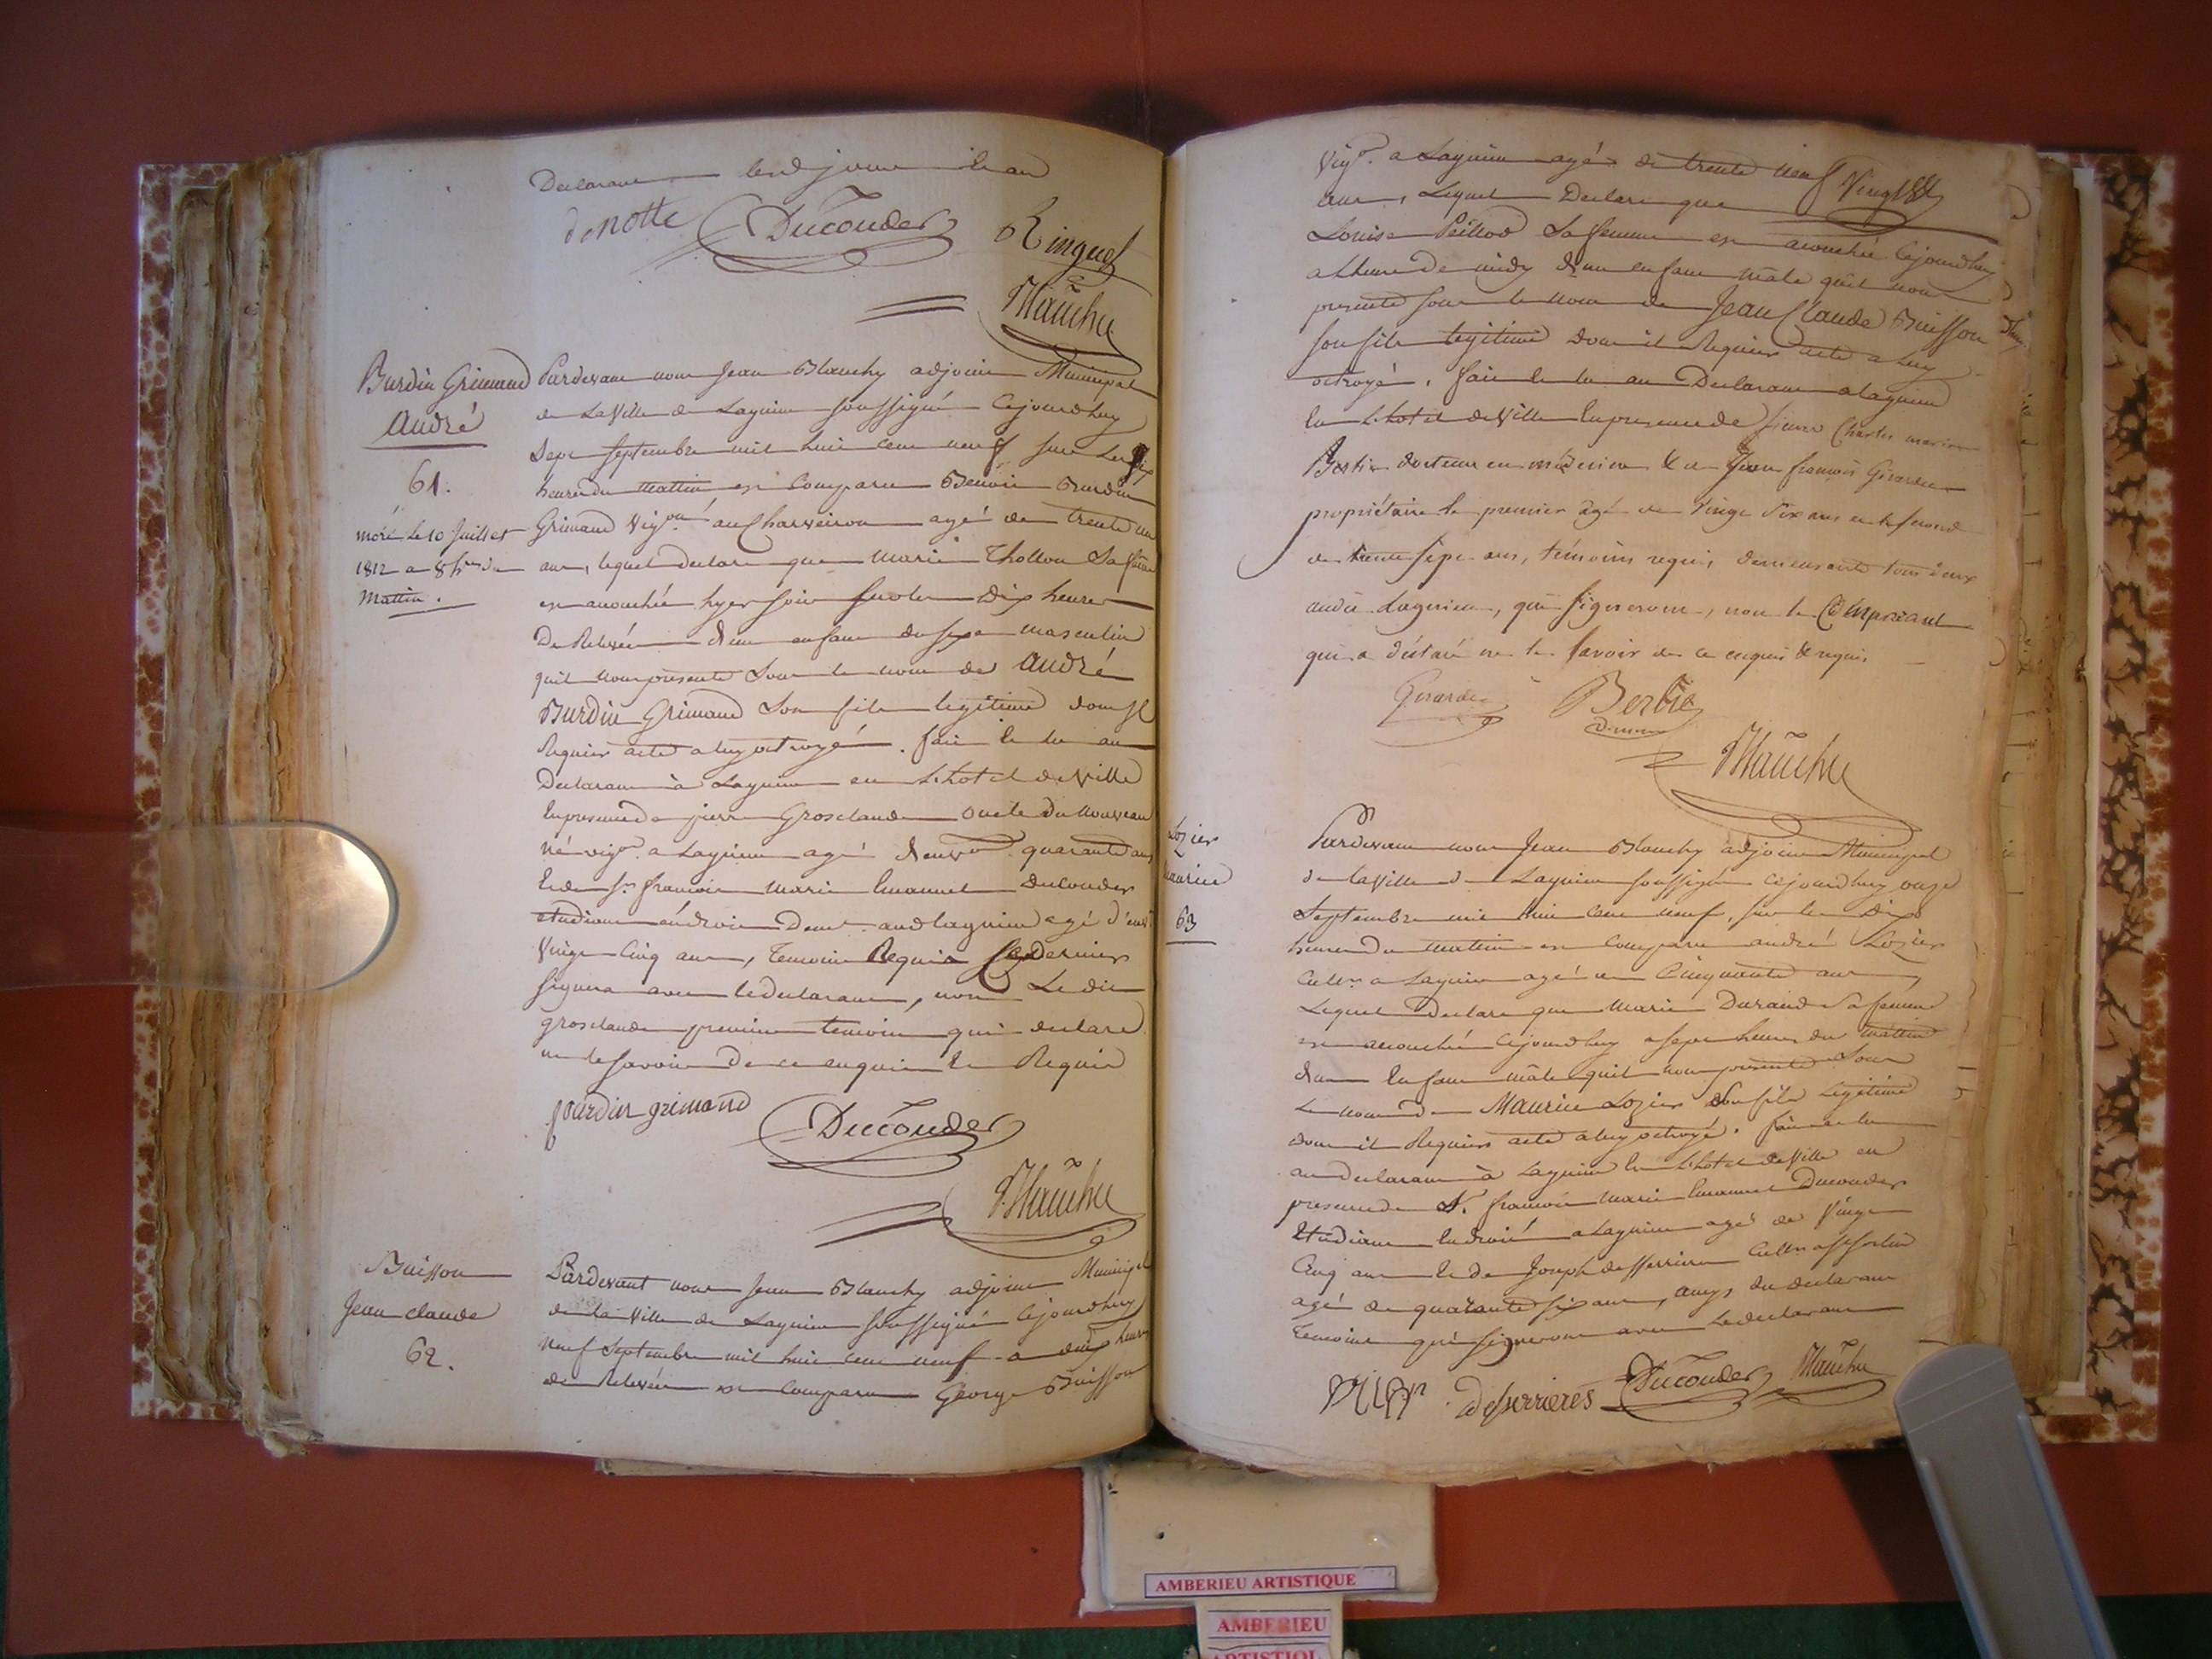 Declarant
denotte Ducouder Ringuet
Blanchy
Burdin Grimand
André
61.
mort Le 10 Juillet
1812 a 8 hres du
Mattin.
Pardevant nous Jean Blanchy adjoint Municipal
de La Ville de Lagnieu soussigné Cejourdhuy
Sept Septembre mil huit cent neuf sur Les dix
heures du mattin est Comparu Benoit Burdin
Grimand Vigon au Charveiron agé de trente un
ans, lequel declare que Marie Thollon Sa femme
est accouchée hyer soir sur les Dix heures
De Relevée d'un enfant du sexe masculin
quil nous présente Sous le nom de André
Burdin Grimand Son fils legitime dont Il
Requiert acte a luy octroyé. fait et lu au
Declarant à Lagnieu en L'hotel de Ville
En presence de pierre Grosclaude oncle du nouveau
né vigon a Lagnieu agé d'environ quarante ans
Et de Sr françois marie Emanuel Ducouder
etudiant en droit Demt aud Lagnieu agé d'env
Vingt Cinq ans, Temoins Requis Ce Dernier
signera avec le declarant, non Le dit
grosclaude premier temoin qui declare
ne le savoir De ce enquis Et Requis
burdin grimand Ducouder
Blanchy
Buisson
Jean claude
62.
Pardevant nous Jean Blanchy adjoint Municipal
de la Ville de Lagnieu soussigné Cejourdhuy
neuf Septembre mil huit cent neuf a deux heures
de Relevée est Comparu George Buisson
Vigon a Lagnieu agé de trente neuf
ans, Lequel Declare que
Louise Peillod Sa femme est accouchée Cejourdhuy
a Lheure de midy d'un enfant mâle quil nous
presente sous le nom de Jean Claude Buisson
son fils legitime dont il Requiert acte a luy
octroyé, fait et lu au Declarant a lagnieu
En L'hotel de Ville En presence de sieurs Charles marin
docteur en médecine & de Jean françois Girardet
propriétaire le premier âgé de Vingt Six ans et le second
de trente sept ans, témoins requis, demeurants tous deux
audit Lagnieu, qui signeront, non le Comparant
qui a déclaré ne le savoir de ce enquis & requis
Girardet
Blanchy
Lozier
Maurice
63
Pardevant nous Jean Blanchy adjoint Municipal
de la Ville de Lagnieu soussigné cejourdhuy onze
Septembre mil huit cent neuf, sur les Dix
heures du mattin est Comparu andré Lozier
Cultr a Lagnieu agé de Cinquante ans,
Lequel Declare que Marie Durand Sa femme
est accouchée Cejourdhuy a sept heures du mattin
d'un Enfant mâle quil nous presente Sous
Le nom de Maurice Lozier Son fils Legitime
dont il Requiert acte a luy octroyé. fait et lu
au declarant à Lagnieu En L'hotel de Ville en
presence de Sr françois marie Emanuel Ducouder
Etudiant En droit a Lagnieu agé de Vingt
Cinq ans Et De Joseph desserrieres Cultr
agé de quarante six ans, amys du declarant
Temoins qui signeront avec Le declarant
Desserrieres Ducouder Blanchy
AMBERIEU ARTISTIQUE
AMBERIEU